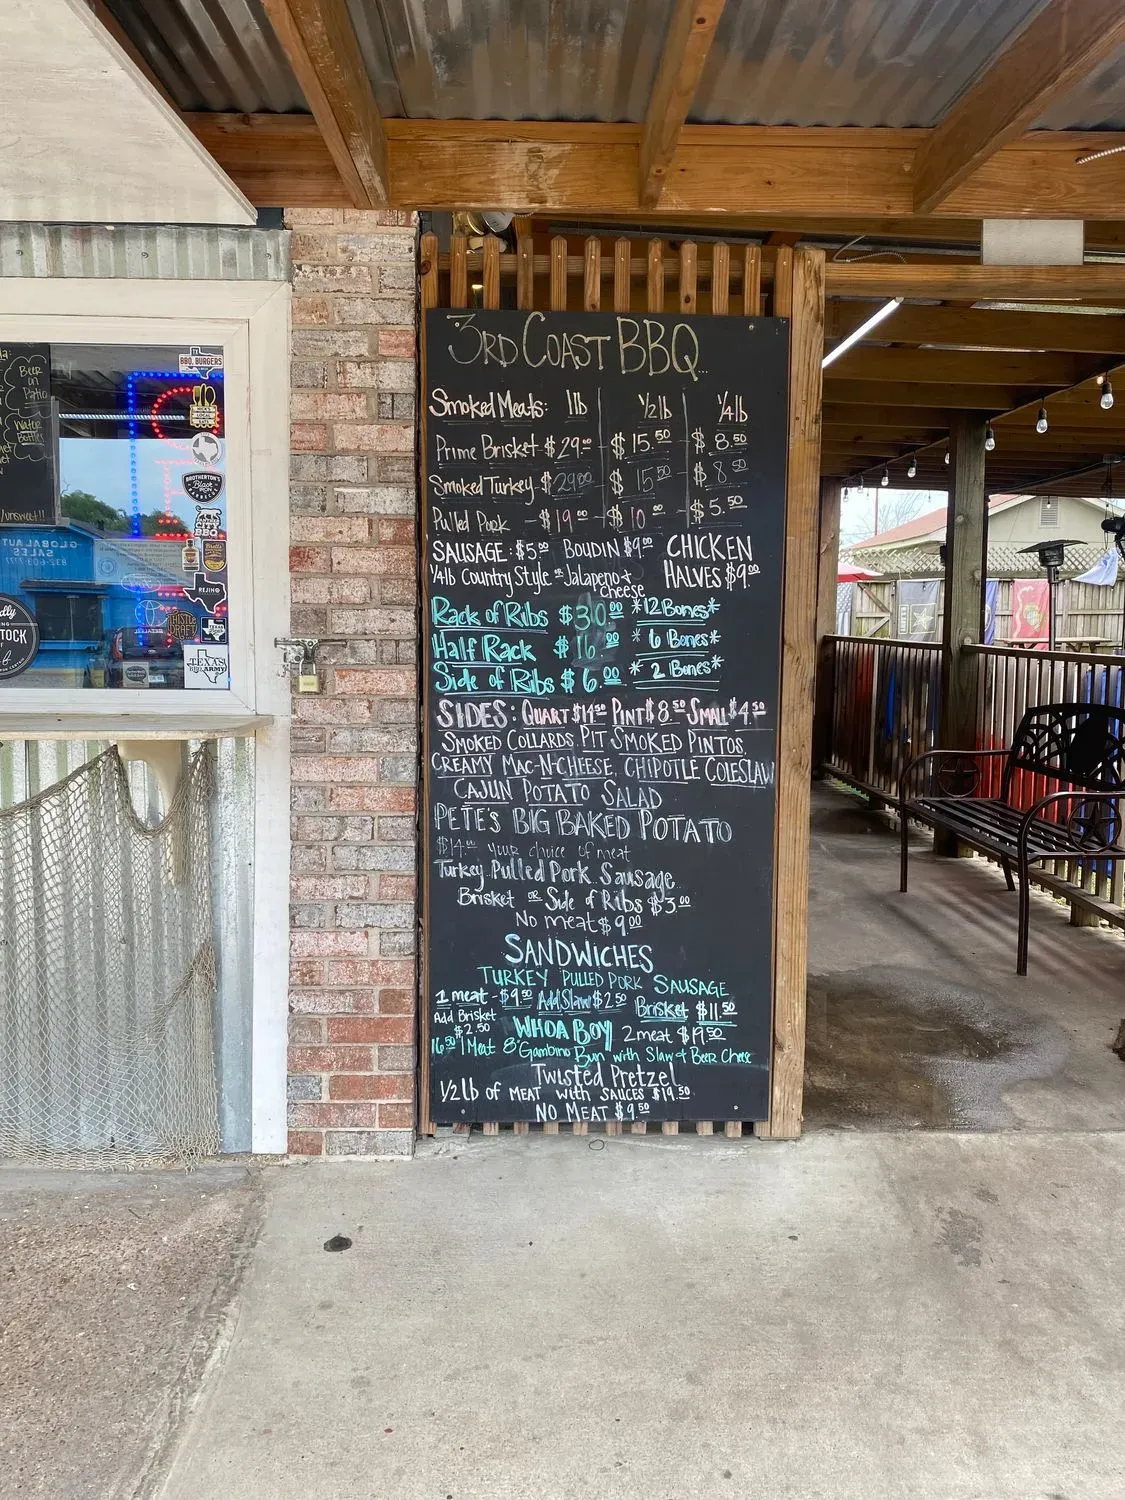 3RD COAST BBQ
Smoked Meats: 1lb 1/2lb 1/4lb
Prime Brisket - $29.00 $15.50 $8.50
Smoked Turkey $29.00 $15.50 $8.50
Pulled Pork - $19.00 $10.00 $5.50
SAUSAGE: $5.00 BOUDIN $9.00 CHICKEN
1/4lb Country Style or Jalapeno + cheese HALVES $9.00
Rack of Ribs $30.00 *12 Bones*
Half Rack $16.00 * 6 Bones*
Side of Ribs $6.00 * 2 Bones*
SIDES: QUART $14.50 PINT $8.50 SMALL $4.50
SMOKED COLLARDS, PIT SMOKED PINTOS,
CREAMY MAC-N-CHEESE, CHIPOTLE COLESLAW
CAJUN POTATO SALAD
PETE'S BIG BAKED POTATO
$14.00 your choice of meat
Turkey Pulled Pork Sausage
Brisket or Side of Ribs $3.00
No meat $9.00
SANDWICHES
TURKEY PULLED PORK SAUSAGE
1 meat - $9.50 Add Slaw $2.50 Brisket $11.50
Add Brisket $2.50
WHOA BOY 2 meat $19.50
16.50 1 Meat 8" Gambino Bun with Slaw & Beer Chese
Twisted Pretzel
1/2 lb OF MEAT WITH SAUCES $19.50
NO MEAT $9.50
Beer
on
Patio
Water
Bottles
/unsweet!!
BBQ, BURGERS
BROTHERTON'S
Black
BBQ
REJINO
THISTLE
DRAFT
TEXAS
BBQ ARMY
GLOBAL AUTO
SALES
832-603-7777
STOCK